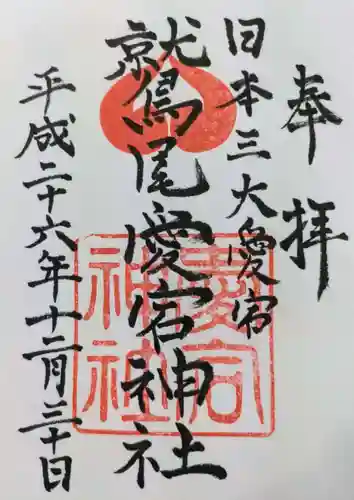 奉拝
日本三大愛宕
鷲尾愛宕神社
平成二十六年十二月三十日
愛宕神社